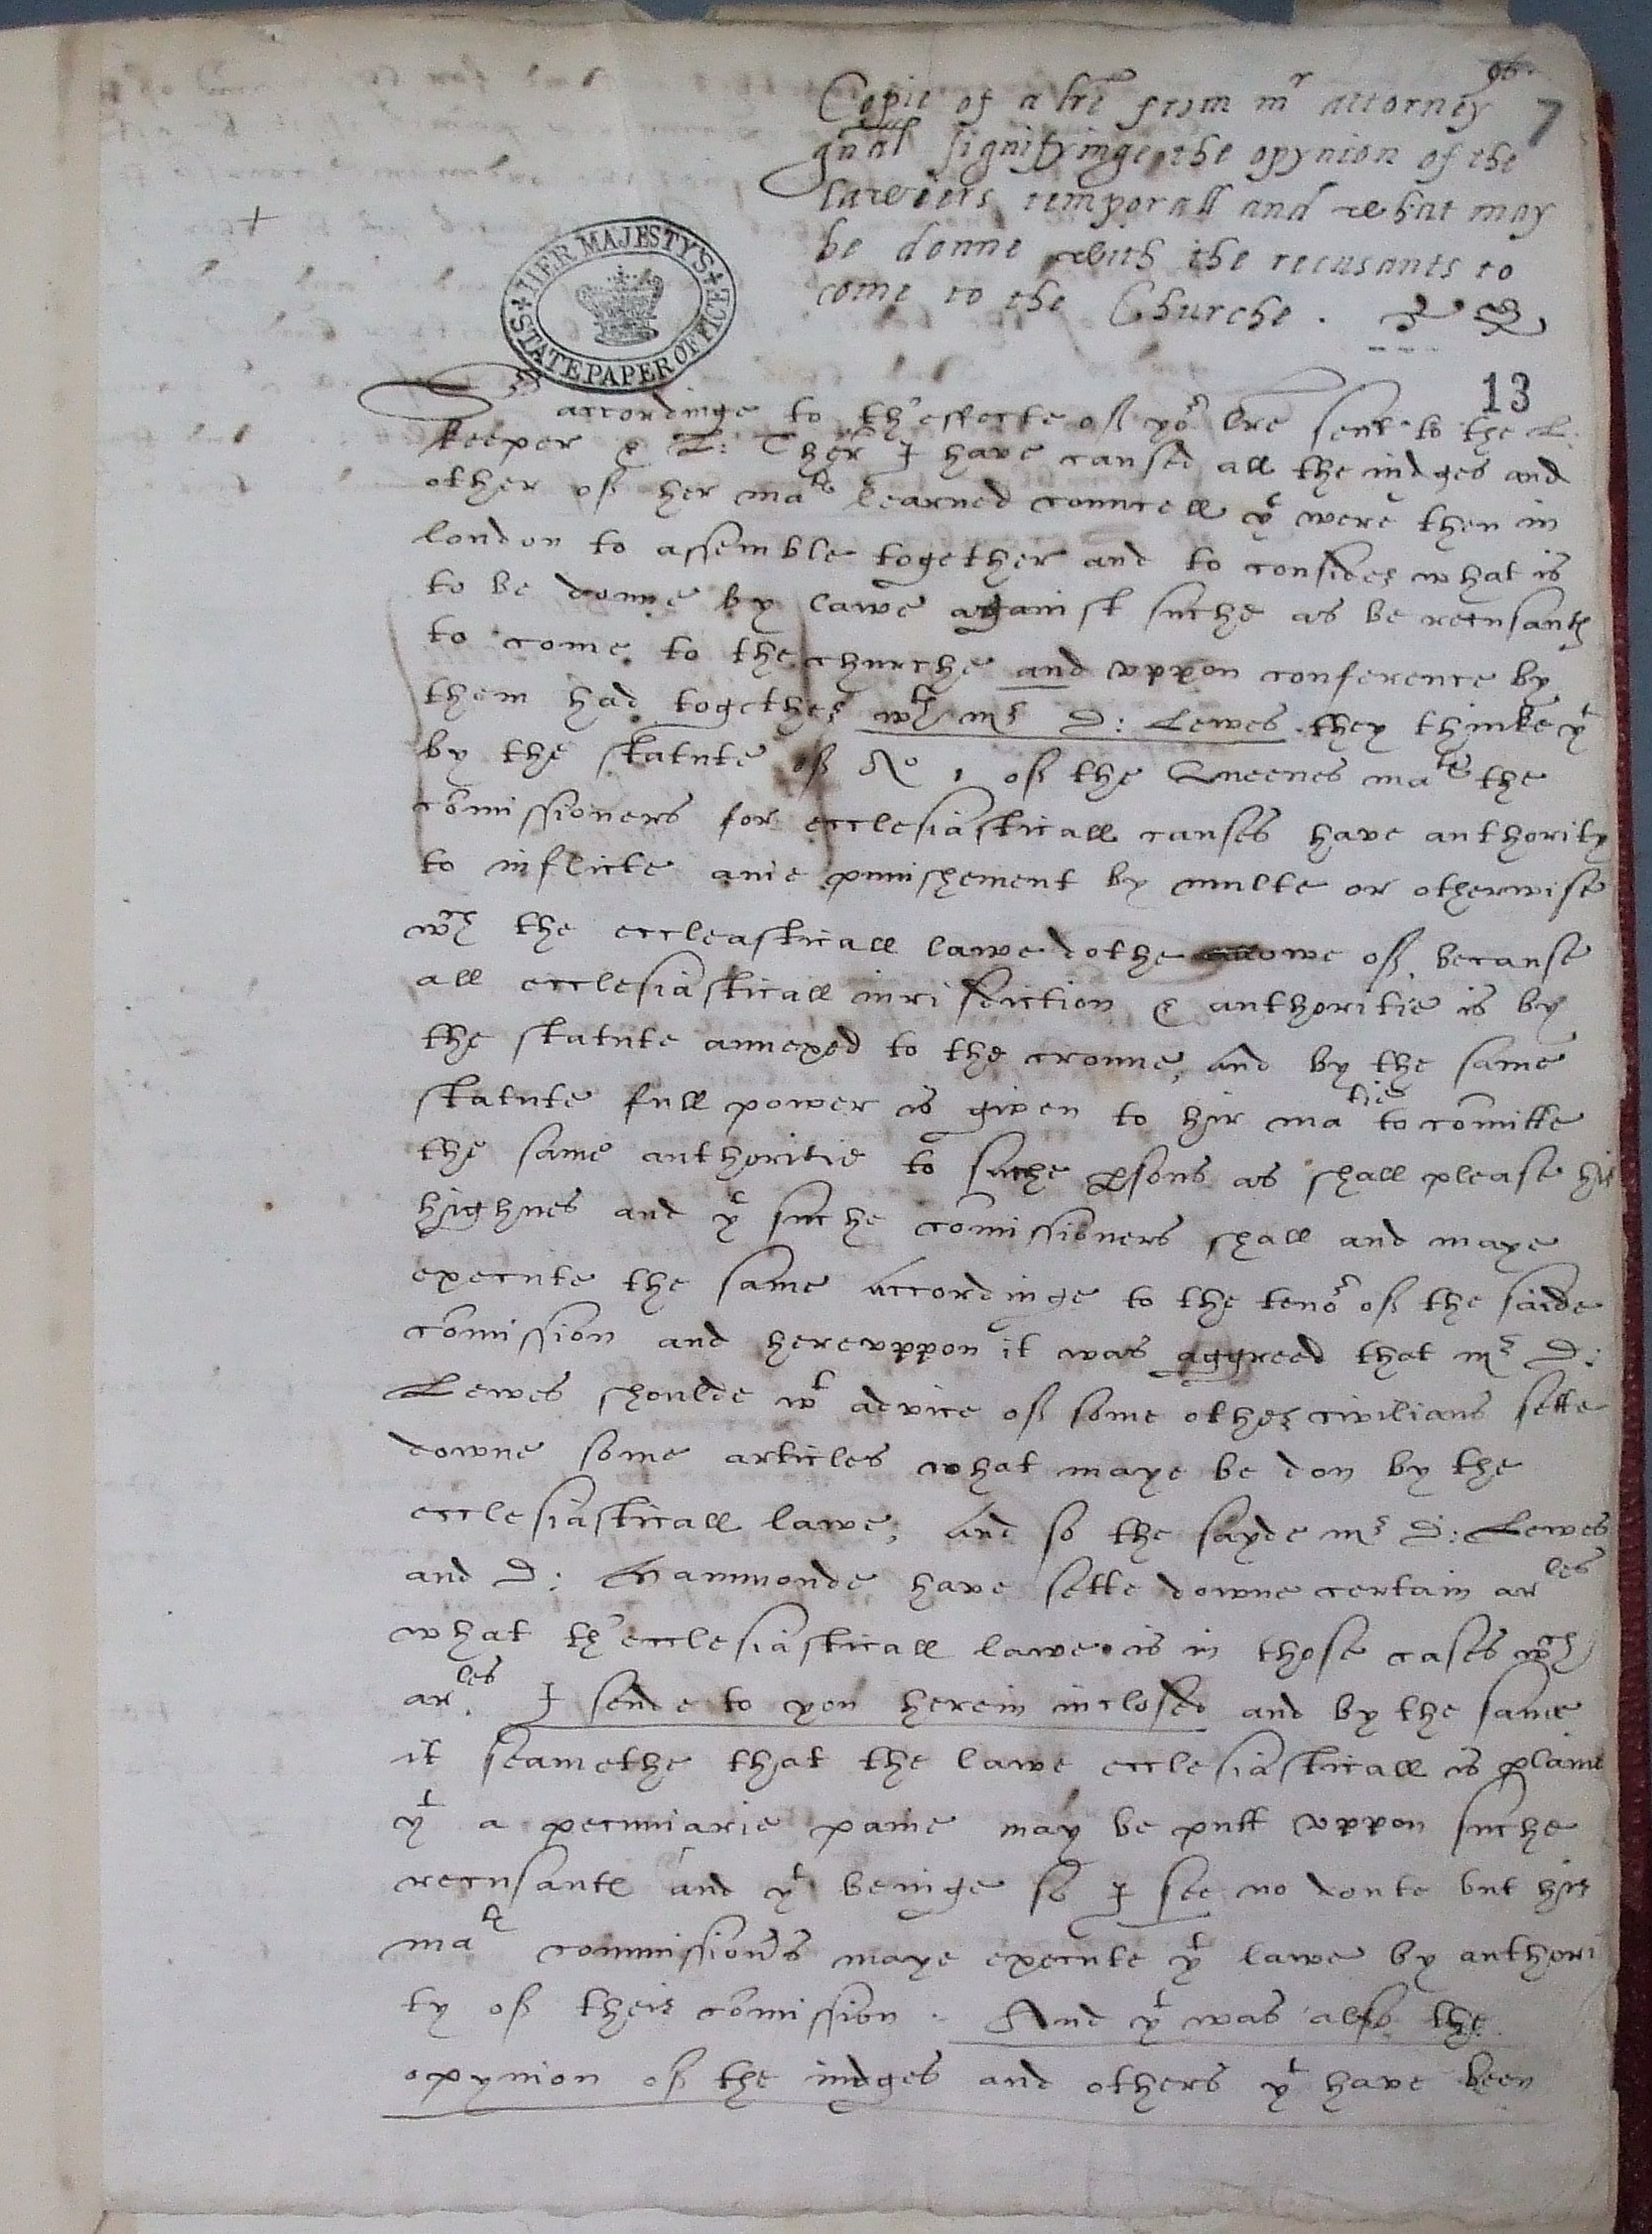 96.
7
Copie of a lre from mr attorney
gnall signifyinge the opynion of the
lawiers temporall and what may
be donne with the recusants to
come to the Churche .
HER MAJESTY'S
STATE PAPER OFFICE
13
Sr accordinge to th'effecte of yor lre sent to the L.
keeper & L: Ther I have caused all the iudges and
other of her mats learned councell yt were then in
london to assemble together and to consider what is
to be donne by lawe against suche as be recusants
to come to the churche and vppon conference by
them had together wth mr D: Lewes they thinke yt
by the statute of Ao 1 of the Queenes mats the
comissioners for ecclesiasticall causes have authority
to inflicte anie punishement by multe or otherwise
wch the eccleasticall lawe dothe allowe of, because
all ecclesiasticall iurisdiction & authoritie is by
the statute annexed to the croune, and by the same
statute full power is given to hir matie to comitte
the same authoritie to suche psons as shall please hir
highnes and yt suche comissioners shall and maye
execute the same accordinge to the tenor of the saide
comission and herevppon it was aggreed that mr D:
Lewes shoulde wt advice of some other civilians sette
downe some articles what maye be don by the
ecclesiasticall lawe, and so the sayde mr D: Lewes
and D: Hammonde have sette downe certain arles
what th'ecclesiasticall lawe is in those cases wch
arles. I sende to you herein inclosed and by the same
it seamethe that the lawe ecclesiasticall is plaine
yt a pecuniarie paine may be putt vppon suche
recusants and yt beinge so I see no doute but hir
mats commissioners maye execute yt lawe by authori
ty of their comission . And yt was also the
opynion of the iudges and others yt have been